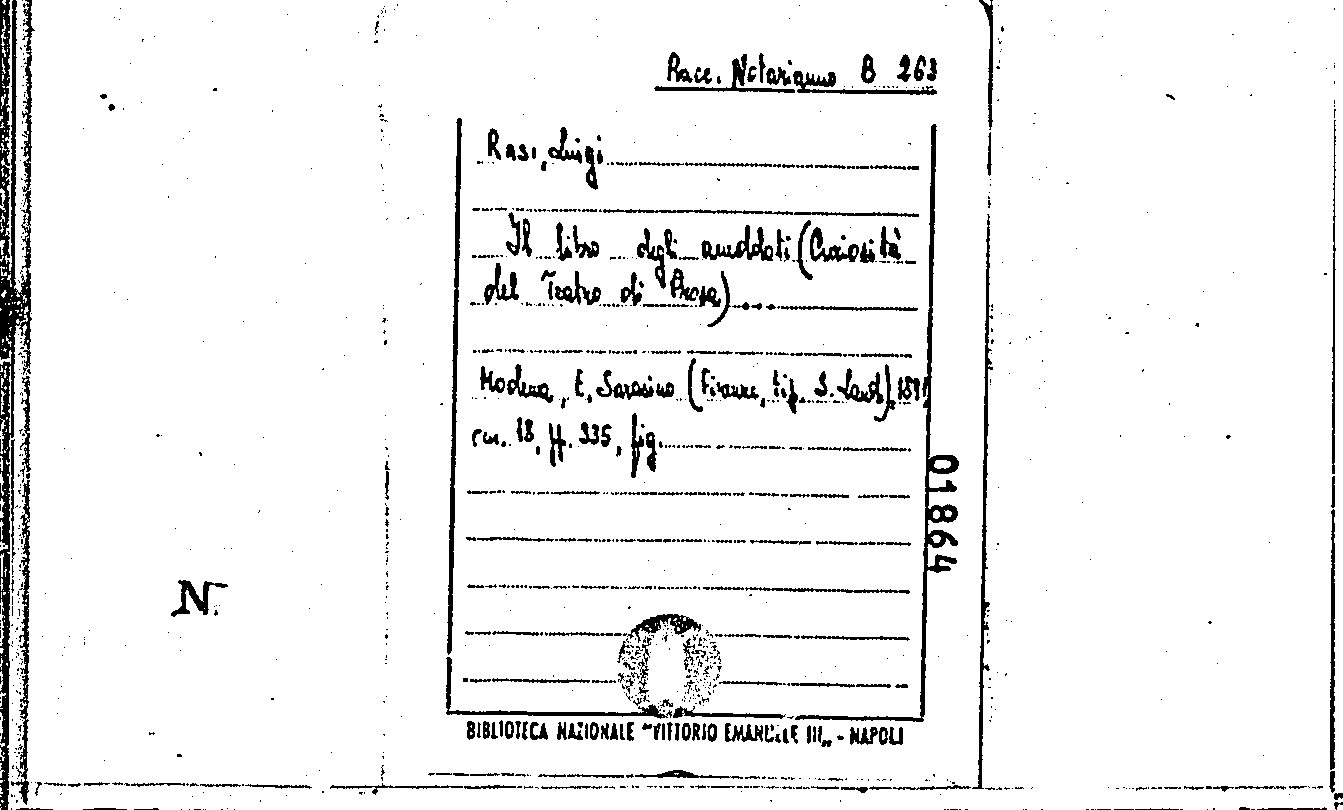 Racc. Notarianno B 263
Rasi, Luigi
Il libro degli aneddoti (Curiosità
del Teatro di Prosa)...
Modena, E. Sarasino (Firenze, tip. S. Landi), 1891,
cm. 18, pp. 335, fig.
01864
N.
BIBLIOTECA NAZIONALE "VITTORIO EMANUELE III„ - NAPOLI